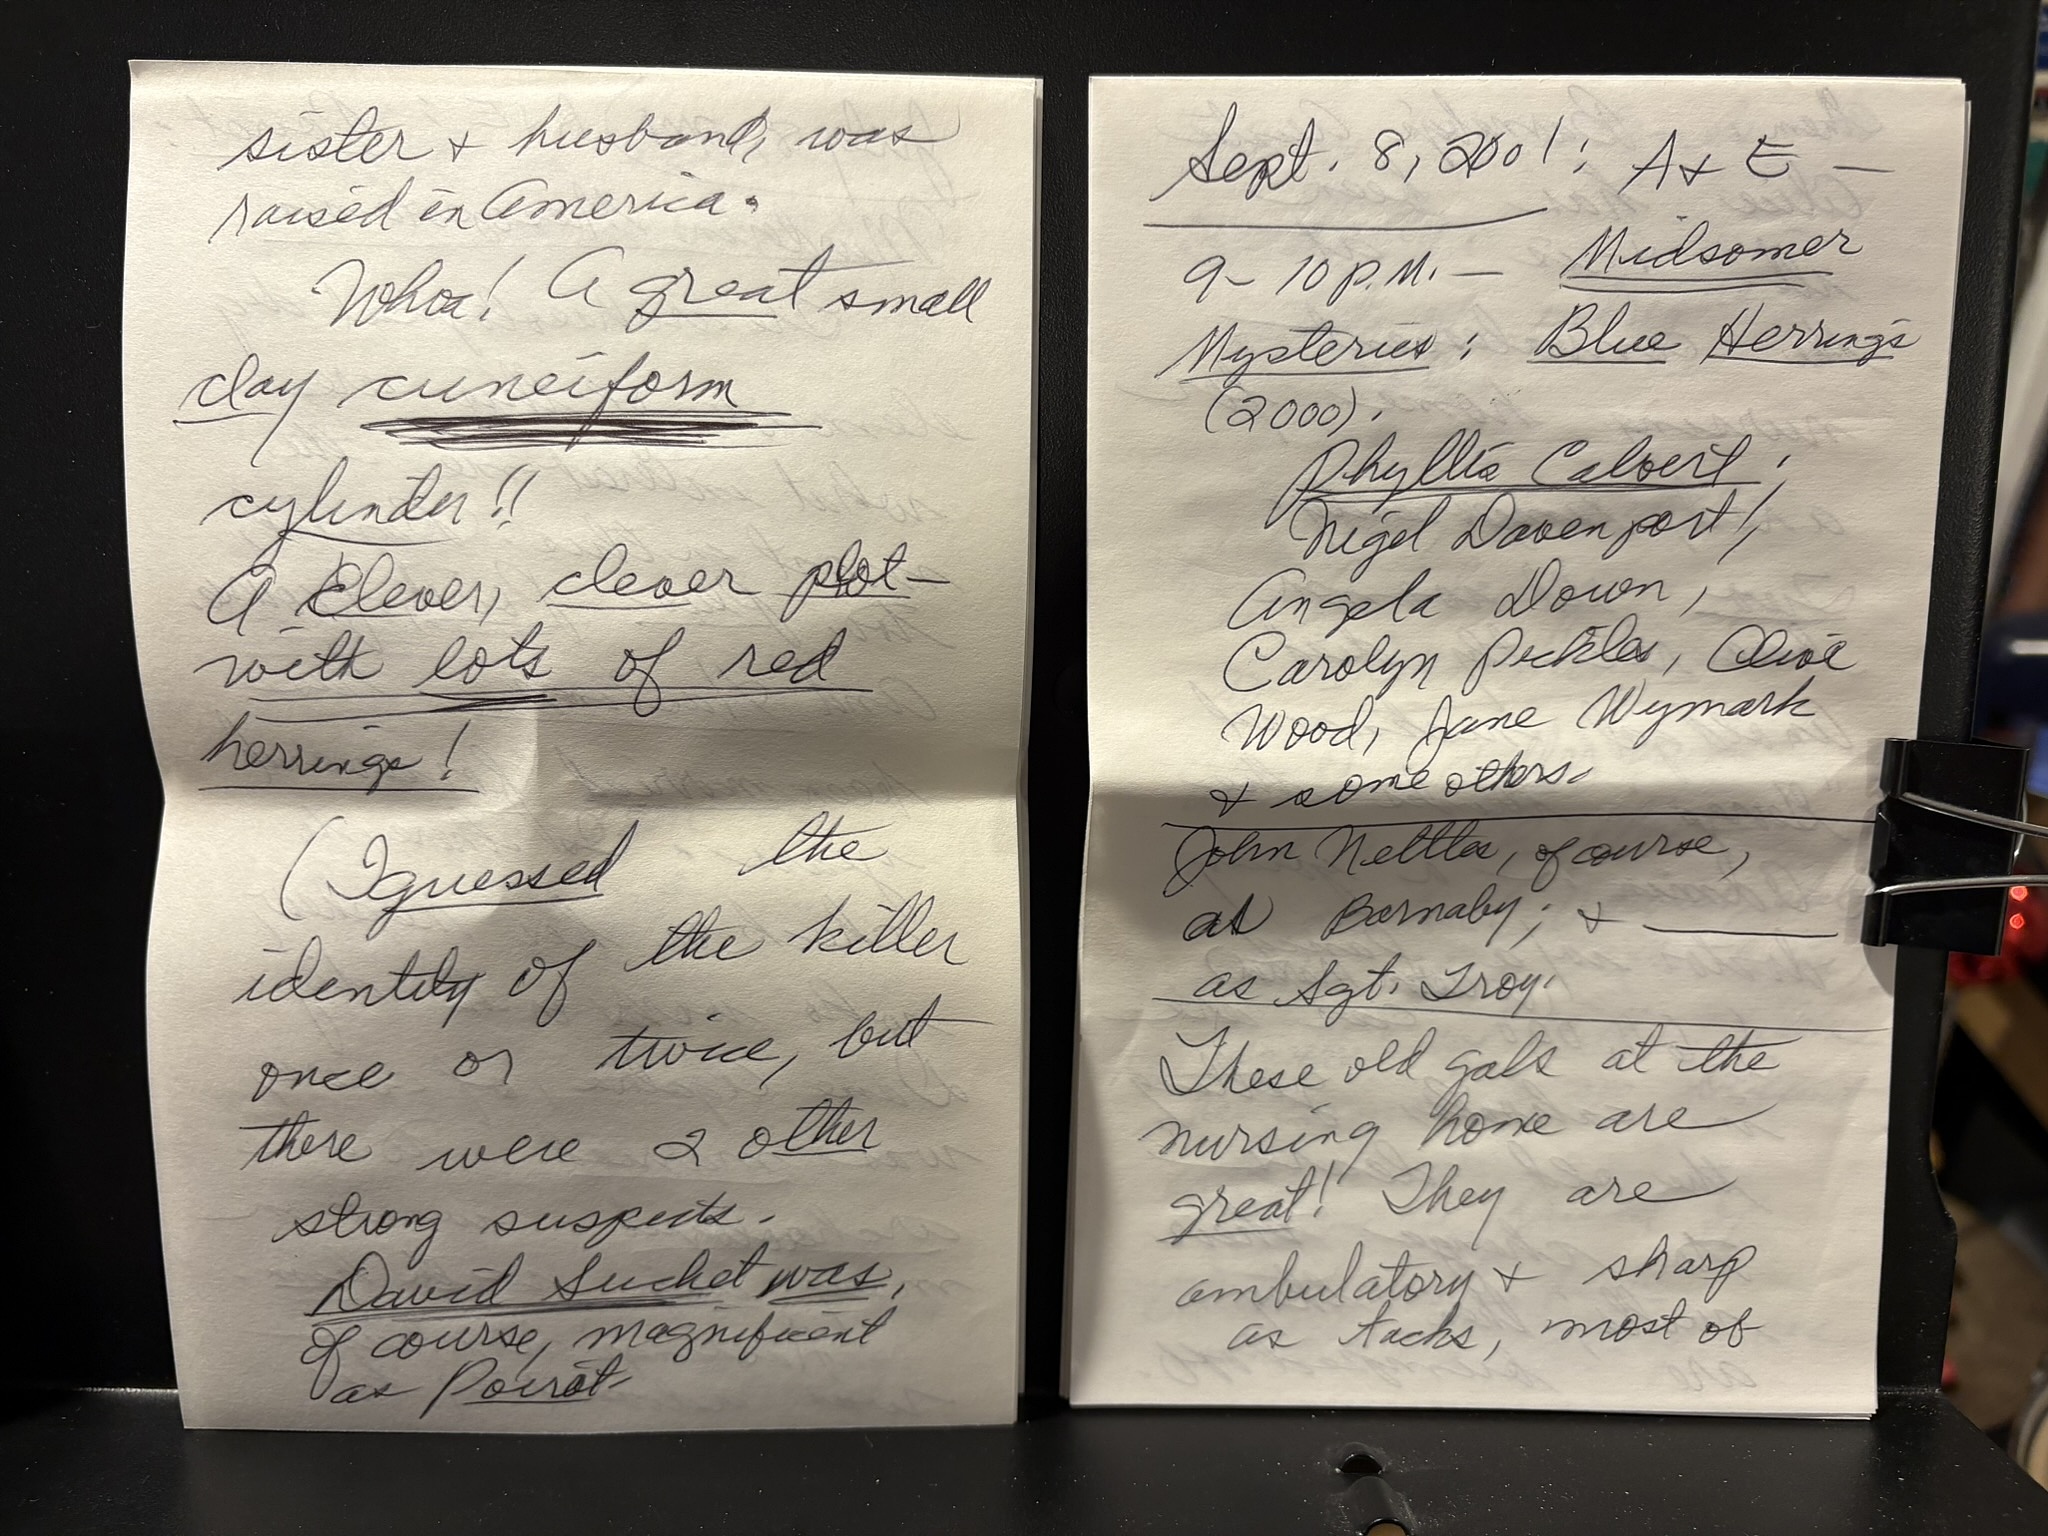 sister & husband, was
raised in America.
Whoa! A great small
clay cuneiform
cylinder!!
A clever, clever plot—
with lots of red
herrings!
(I guessed the
identity of the killer
once or twice, but
there were 2 other
strong suspects.
David Suchet was,
of course, magnificent
as Poirot.
Sept. 8, 2001: A & E —
9-10 P.M. — Midsomer
Mysteries: Blue Herrings
(2000).
Phyllis Calvert;
Nigel Davenport!,
Angela Down,
Carolyn Pickles, Clive
Wood, Jane Wymark
& some others.
John Nettles, of course,
as Barnaby; &
as Sgt. Troy.
These old gals at the
nursing home are
great! They are
ambulatory & sharp
as tacks, most of